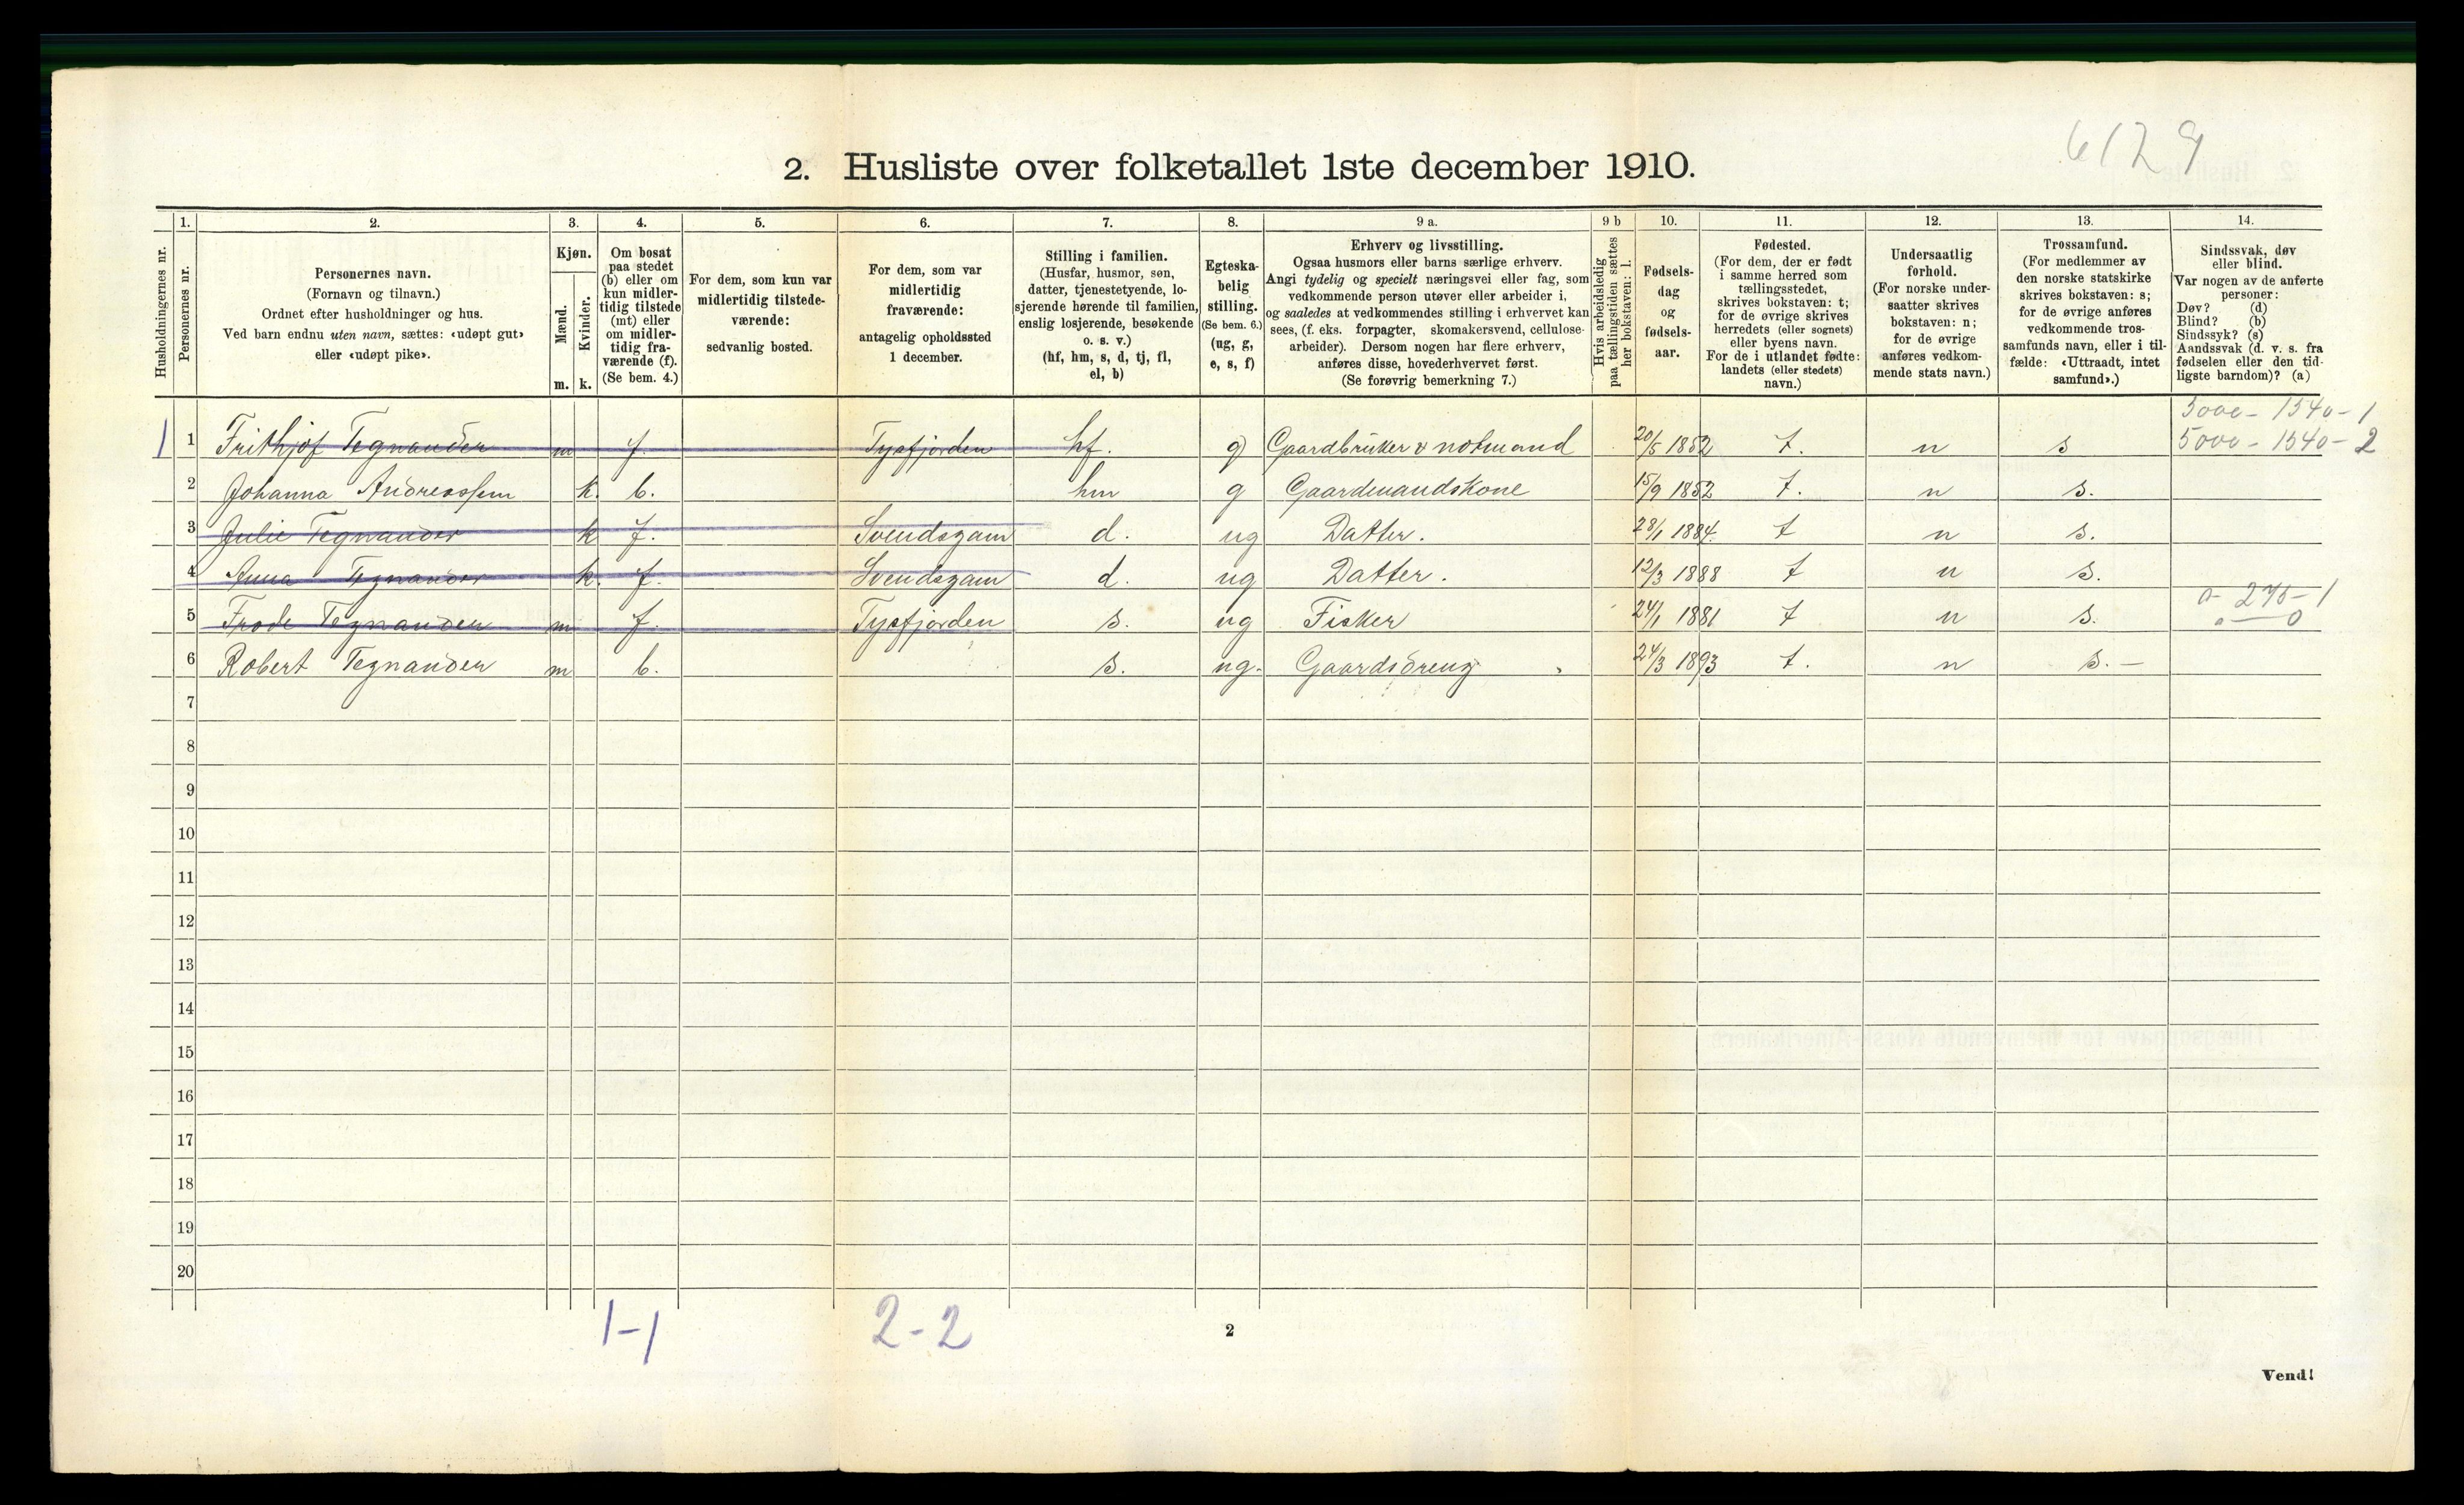 6129
2. Husliste over folketallet 1ste december 1910.
1. 2. 3. 4. 5. 6. 7. 8. 9 a. 9 b 10. 11. 12. 13. 14.
Husholdningernes nr.
Personernes nr.
Personernes navn.
(Fornavn og tilnavn.)
Ordnet efter husholdninger og hus.
Ved barn endnu uten navn, sættes: «udøpt gut»
eller «udøpt pike».
Kjøn.
Mænd.
Kvinder.
m. k.
Om bosat
paa stedet
(b) eller om
kun midler-
tidig tilstede
(mt) eller
om midler-
tidig fra-
værende (f).
(Se bem. 4.)
For dem, som kun var
midlertidig tilstede-
værende:
sedvanlig bosted.
For dem, som var
midlertidig
fraværende:
antagelig opholdssted
1 december.
Stilling i familien.
(Husfar, husmor, søn,
datter, tjenestetyende, lo-
sjerende hørende til familien,
enslig losjerende, besøkende
o. s. v.)
(hf, hm, s, d, tj, fl,
el, b)
Egteska-
belig
stilling.
(Se bem. 6.)
(ug, g,
e, s, f)
Erhverv og livsstilling.
Ogsaa husmors eller barns særlige erhverv.
Angi tydelig og specielt næringsvei eller fag, som
vedkommende person utøver eller arbeider i,
og saaledes at vedkommendes stilling i erhvervet kan
sees, (f. eks. forpagter, skomakersvend, cellulose-
arbeider). Dersom nogen har flere erhverv,
anføres disse, hovederhvervet først.
(Se forøvrig bemerkning 7.)
Hvis arbeidsledig
paa tællingstiden sættes
her bokstaven: l.
Fødsels-
dag
og
fødsels-
aar.
Fødested.
(For dem, der er født
i samme herred som
tællingsstedet,
skrives bokstaven: t;
for de øvrige skrives
herredets (eller sognets)
eller byens navn.
For de i utlandet fødte:
landets (eller stedets)
navn.)
Undersaatlig
forhold.
(For norske under-
saatter skrives
bokstaven: n;
for de øvrige
anføres vedkom-
mende stats navn.)
Trossamfund.
(For medlemmer av
den norske statskirke
skrives bokstaven: s;
for de øvrige anføres
vedkommende tros-
samfunds navn, eller i til-
fælde: «Uttraadt, intet
samfund».)
Sindssvak, døv
eller blind.
Var nogen av de anførte
personer:
Døv? (d)
Blind? (b)
Sindssyk? (s)
Aandssvak (d. v. s. fra
fødselen eller den tid-
ligste barndom)? (a)
5000 - 1540 - 1
1 1 Frithjof Tegnander m f Tysfjorden hf. g Gaardbruker & notmand 20/5 1852 t. n s 5000 - 1540 - 2
2 Johanna Andreassen k. b. hm g Gaardmandskone 15/9 1852 t. n s.
3 Julie Tegnander k f. Svendsgam d. ug Datter. 28/1 1884. t n s.
4 Anna Tegnander k. f. Svendsgam d. ug Datter. 12/3 1888 t n s.
5 Frode Tegnander m f. Tysfjorden s. ug Fisker 24/1 1881 t n s. 0 - 275 - 1
6 Robert Tegnander m b. s. ug. Gaardsdreng 24/3 1893 t. n s. —
7
8
9
10
11
12
13
14
15
16
17
18
19
20
1-1 2-2
2
Vend!